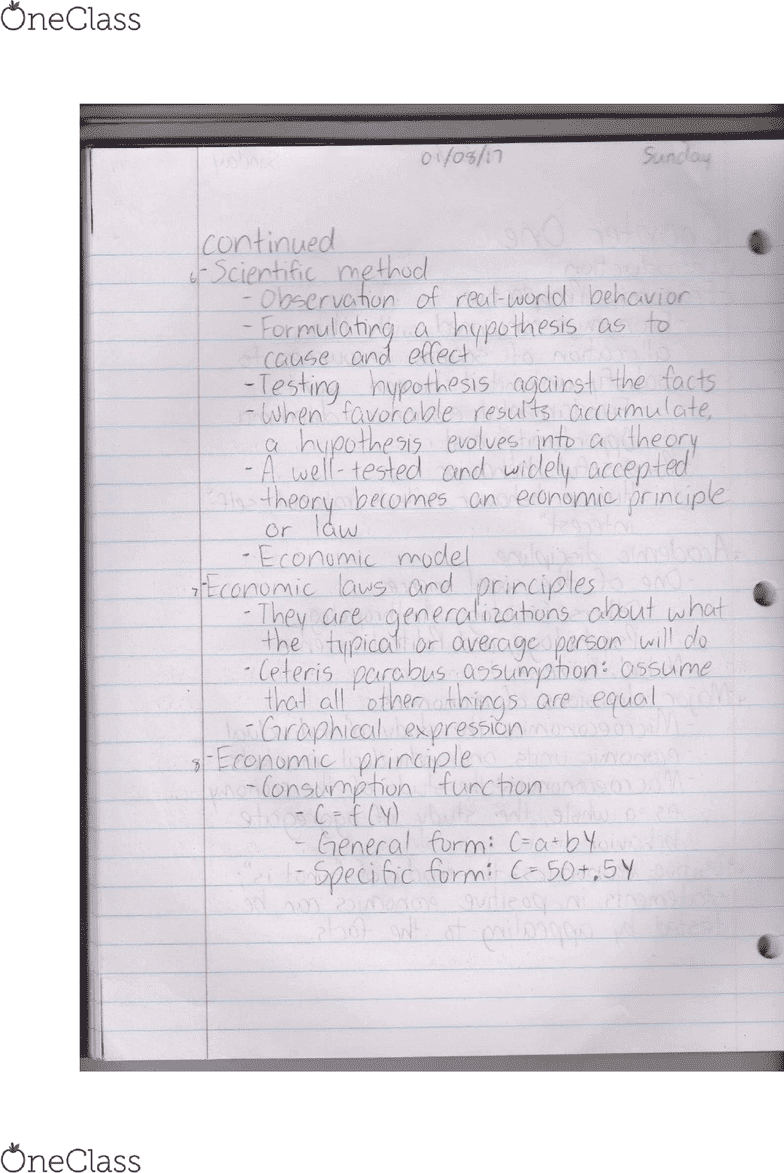 OneClass
01/08/17 Sunday
continued
6-Scientific method
- Observation of real-world behavior
- Formulating a hypothesis as to
cause and effect
- Testing hypothesis against the facts
- When favorable results accumulate,
a hypothesis evolves into a theory
- A well-tested and widely accepted
theory becomes an economic principle
or law
- Economic model
7-Economic laws and principles
- They are generalizations about what
the typical or average person will do
- Ceteris parabus assumption: assume
that all other things are equal
- Graphical expression
8-Economic principle
- Consumption function
- C=f(Y)
- General form: C=a+bY
- Specific form: C=50+.5Y
OneClass